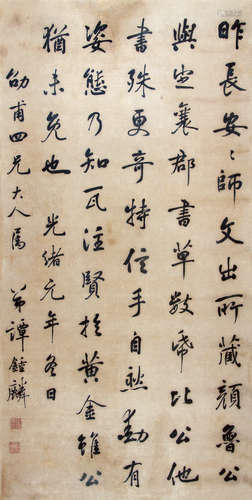 昨長安〻師文出所藏顏魯公
與定襄郡書草數紙比公他
書殊更奇特信手自然動有
姿態乃知瓦注賢於黃金雖公
猶未免也 光緒元年冬日
劭甫四兄大人屬
弟譚鍾麟